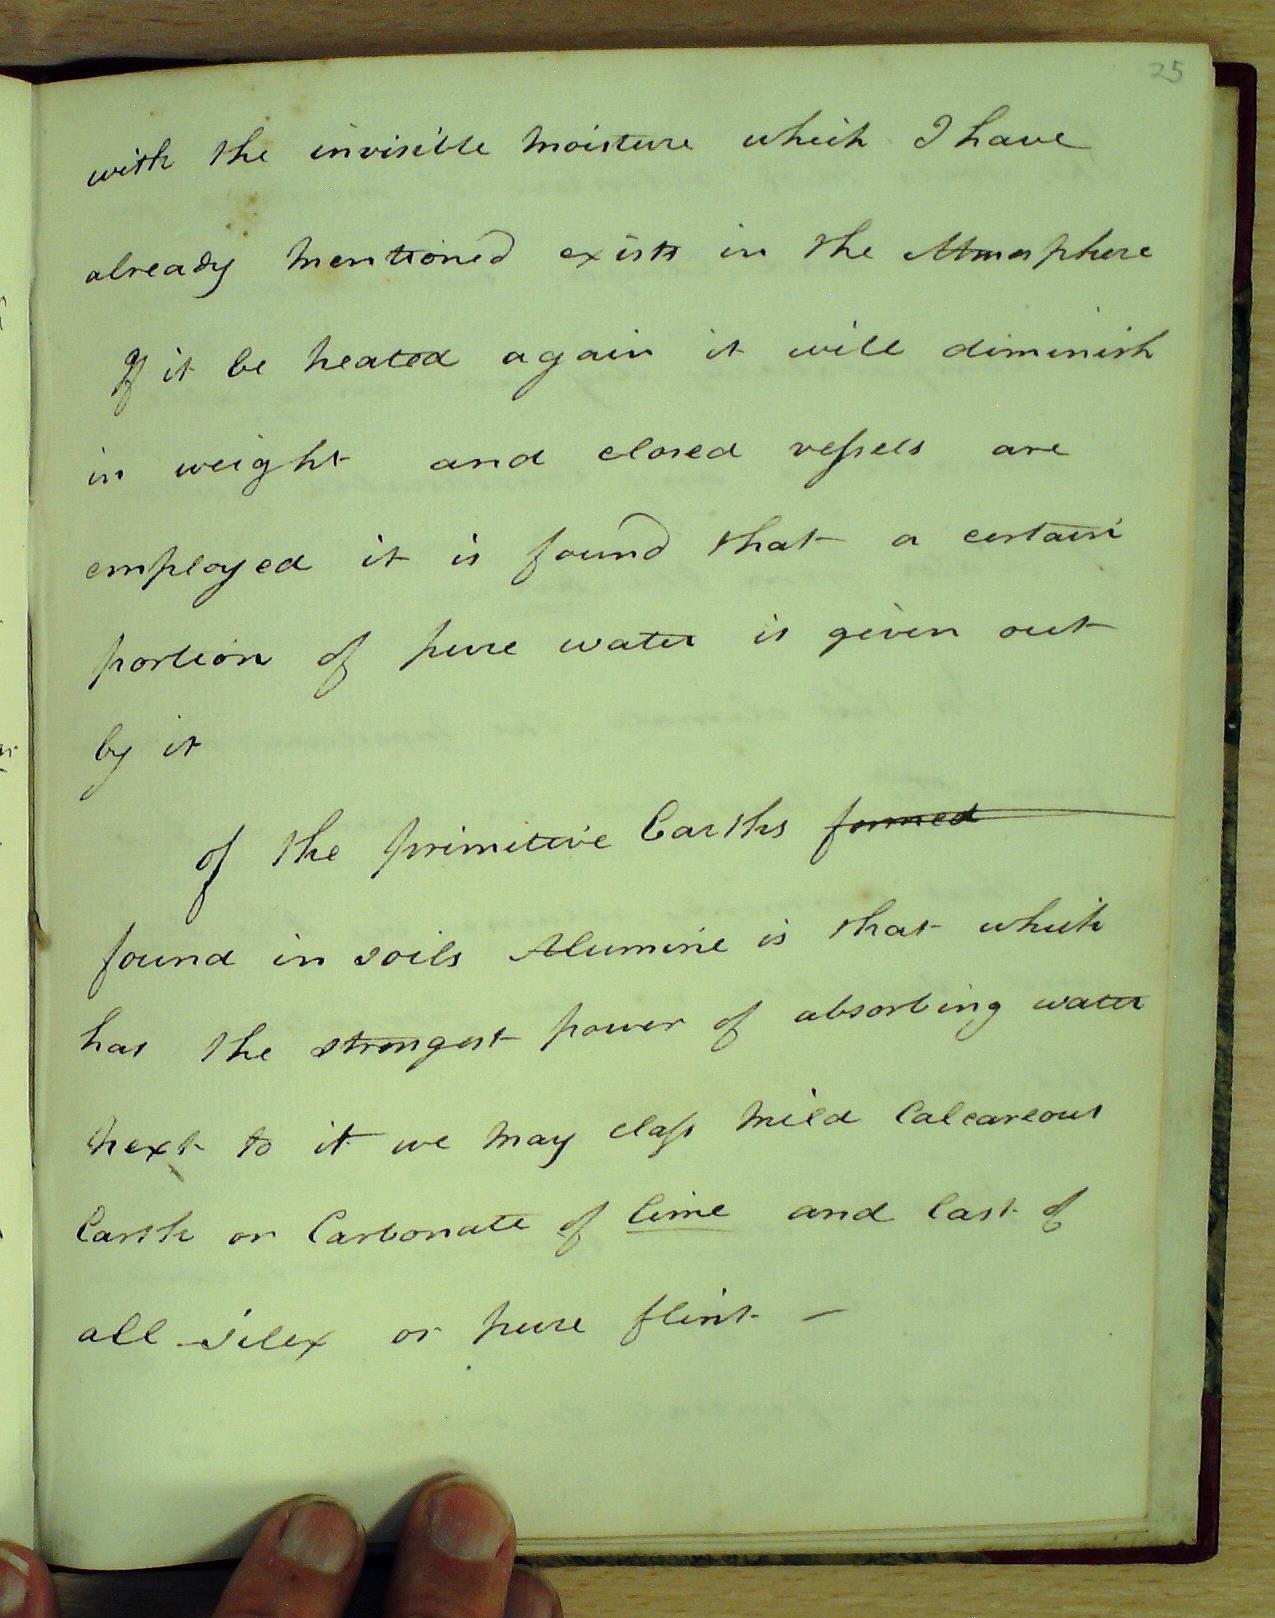 25
with the invisible moisture which I have
already mentioned exists in the Atmosphere
If it be heated again it will diminish
in weight and closed vessels are
employed it is found that a certain
portion of pure water is given out
by it
of the primitive Earths formed
found in soils Alumine is that which
has the strongest power of absorbing water
next to it we may class mild Calcareous
Earth or Carbonate of lime and last of
all silex or pure flint –